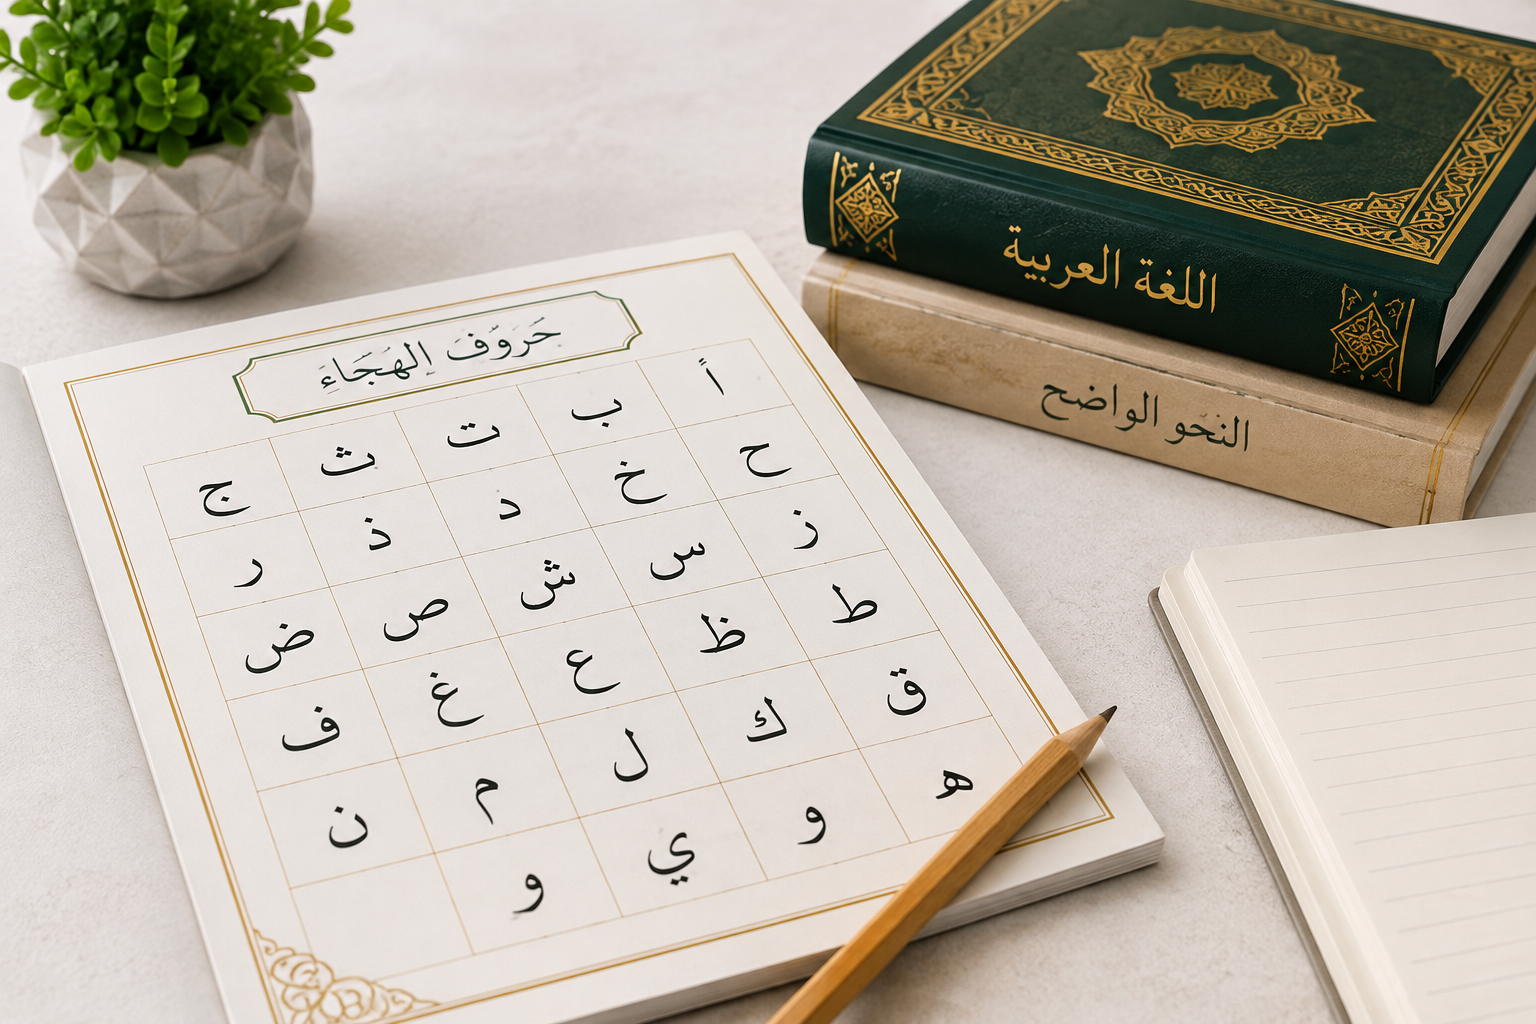 حَرَوَّفَ اِلهَجَاءَ
أ ب ت ث ج
ح خ د ذ ر
ز س ش ص ض
ط ظ ع غ ف
ق ك ل م ن
ه و ي و
اللغة العربية
النحو الواضح